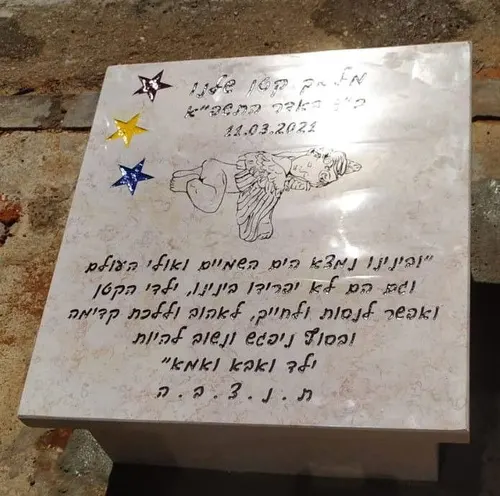 מלאך קטן שלנו
כ"ז באדר התשפ"א
11.03.2021
"ובינינו נמצא הים השמיים ואולי העולם
וגם הם לא יפרידו בינינו, ילדי הקטן
ואפשר לנסות ולחייך, לאהוב וללכת קדימה
ובסוף ניפגש ונשוב להיות
ילד ואבא ואמא"
ת . נ . צ . ב . ה